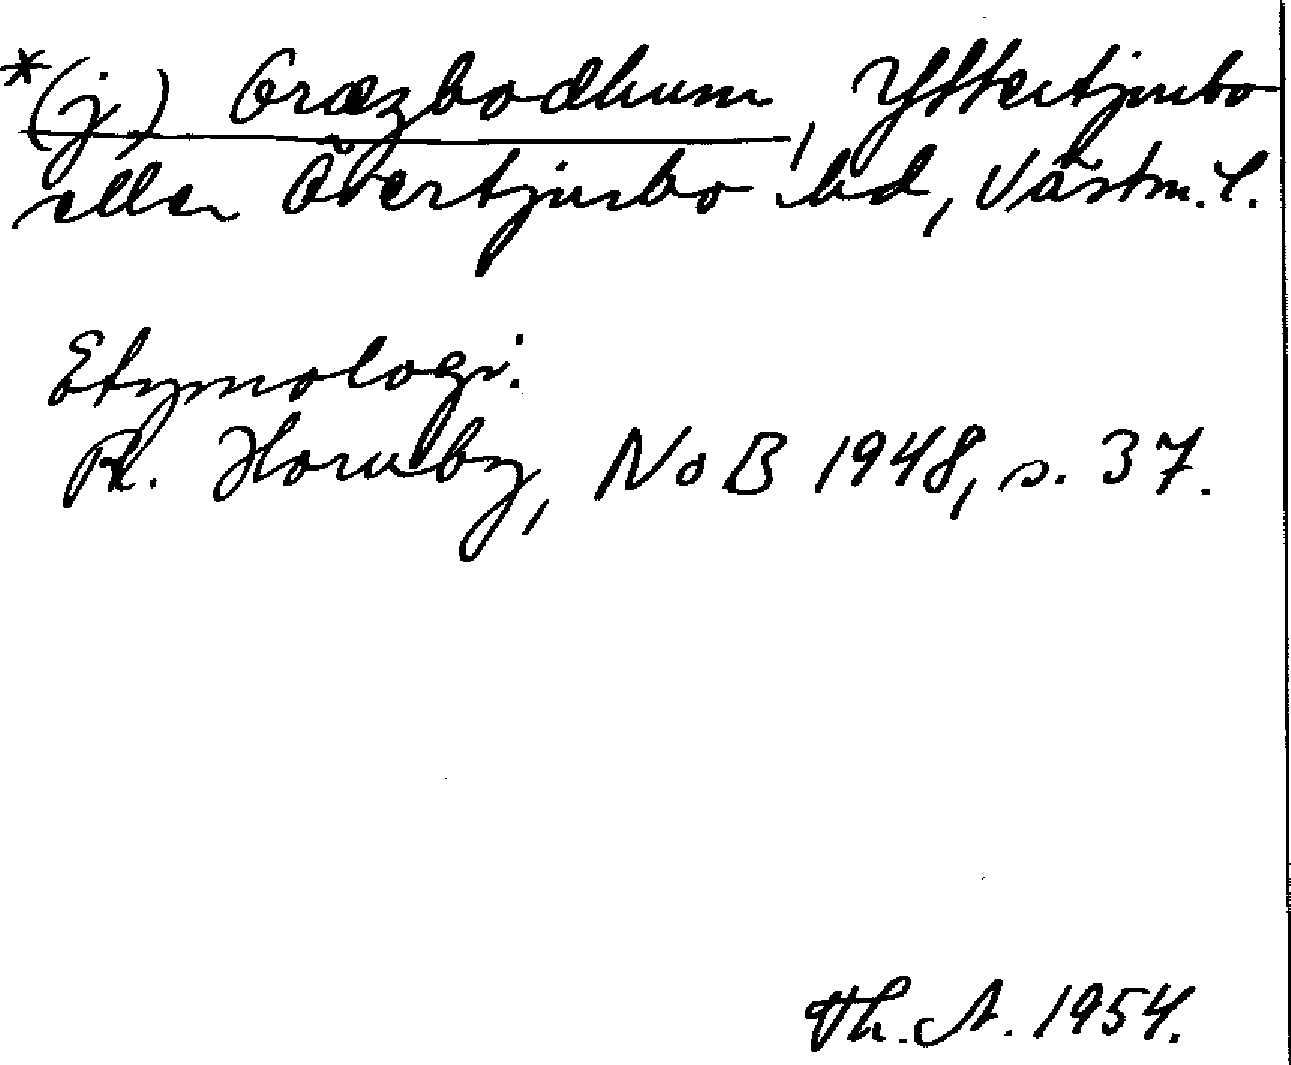 *(j) Græzbodhum, Yttertjurbo
eller Övertjurbo hd, Västm. l.
Etymologi:
R. Hornby, NoB 1948, s. 37.
Th. A. 1954.